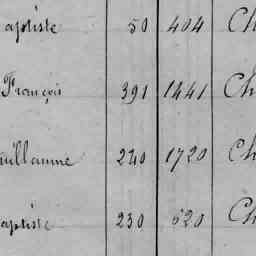 aptiste 50 404 Ch
François 391 1441 Ch
uillaume 220 1720 Ch
aptiste 230 520 Ch